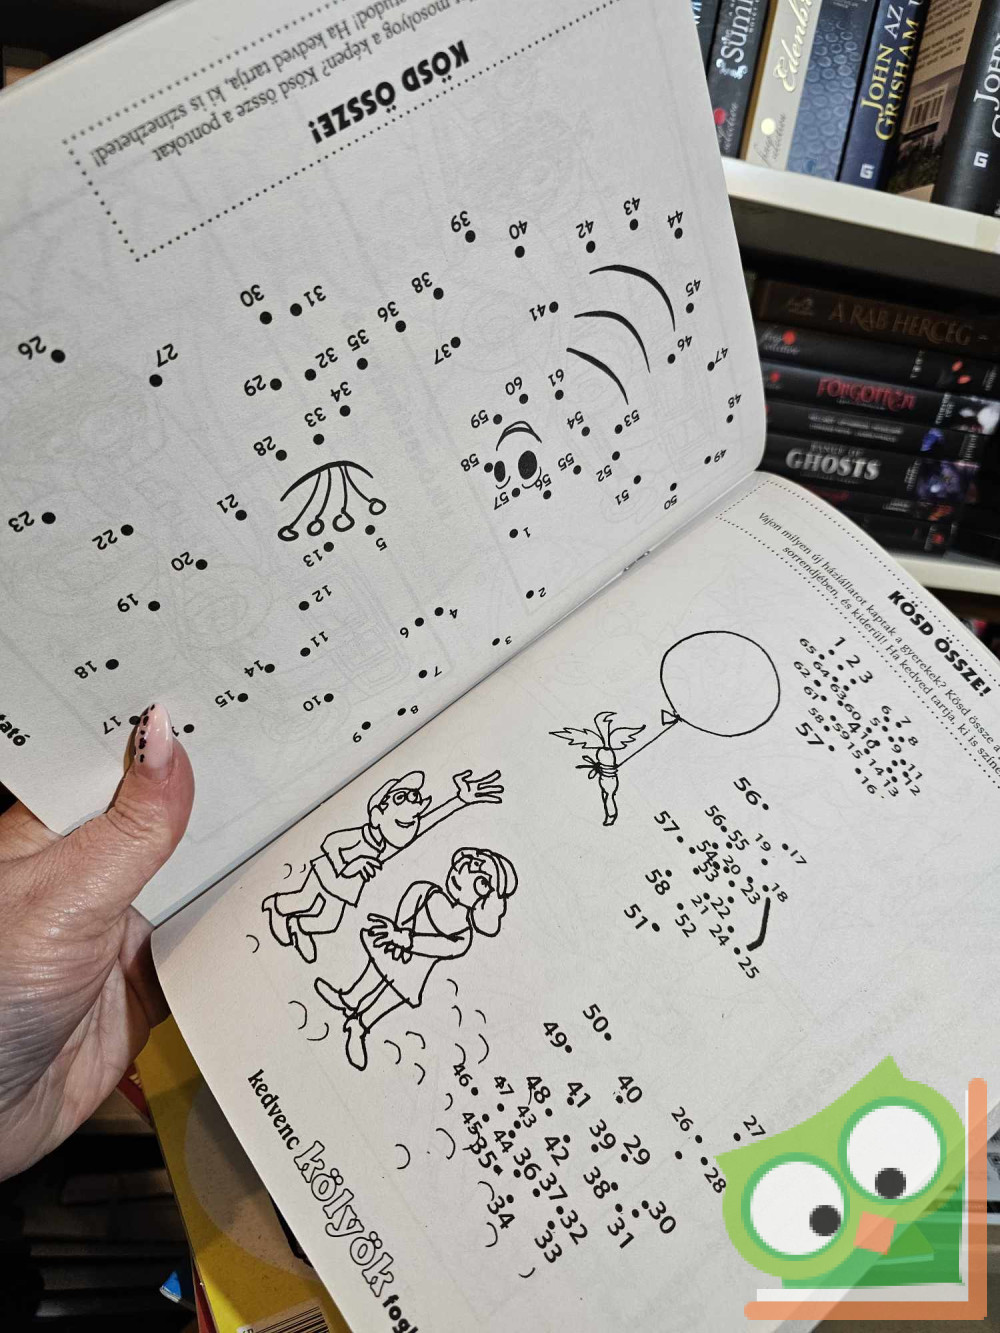 KÖSD ÖSSZE!
mosolyog a képen? Kösd össze a pontokat
tudod! Ha kedved tartja, ki is színezheted!
39
40
42
43
44
38
41
45
30
31
36
37
46
47
26
27
35
32
29
34
33
28
60
61
59
54
53
48
58
55
52
49
57
56
51
50
23
22
21
20
13
5
1
12
2
19
4
6
3
11
18
14
7
15
10
8
9
17
KÖSD ÖSSZE!
Vajon milyen új háziállatot kaptak a gyerekek? Kösd össze a
sorrendjében, és kiderül! Ha kedved tartja, ki is
1
2
3
65
64
62
63
61
60
58
59
57
4
5
6
7
8
9
10
11
12
13
14
15
16
56
57
56
55
54
53
58
51
52
19
17
20
18
23
22
21
24
25
50
49
46
47
48
41
40
45
43
44
42
39
29
35
36
37
38
34
32
33
31
30
26
27
28
kedvenc kölyök fogl
tató
JOHN
GRISHAM
A RAB HERCEG
FORGOTTEN
GHOSTS